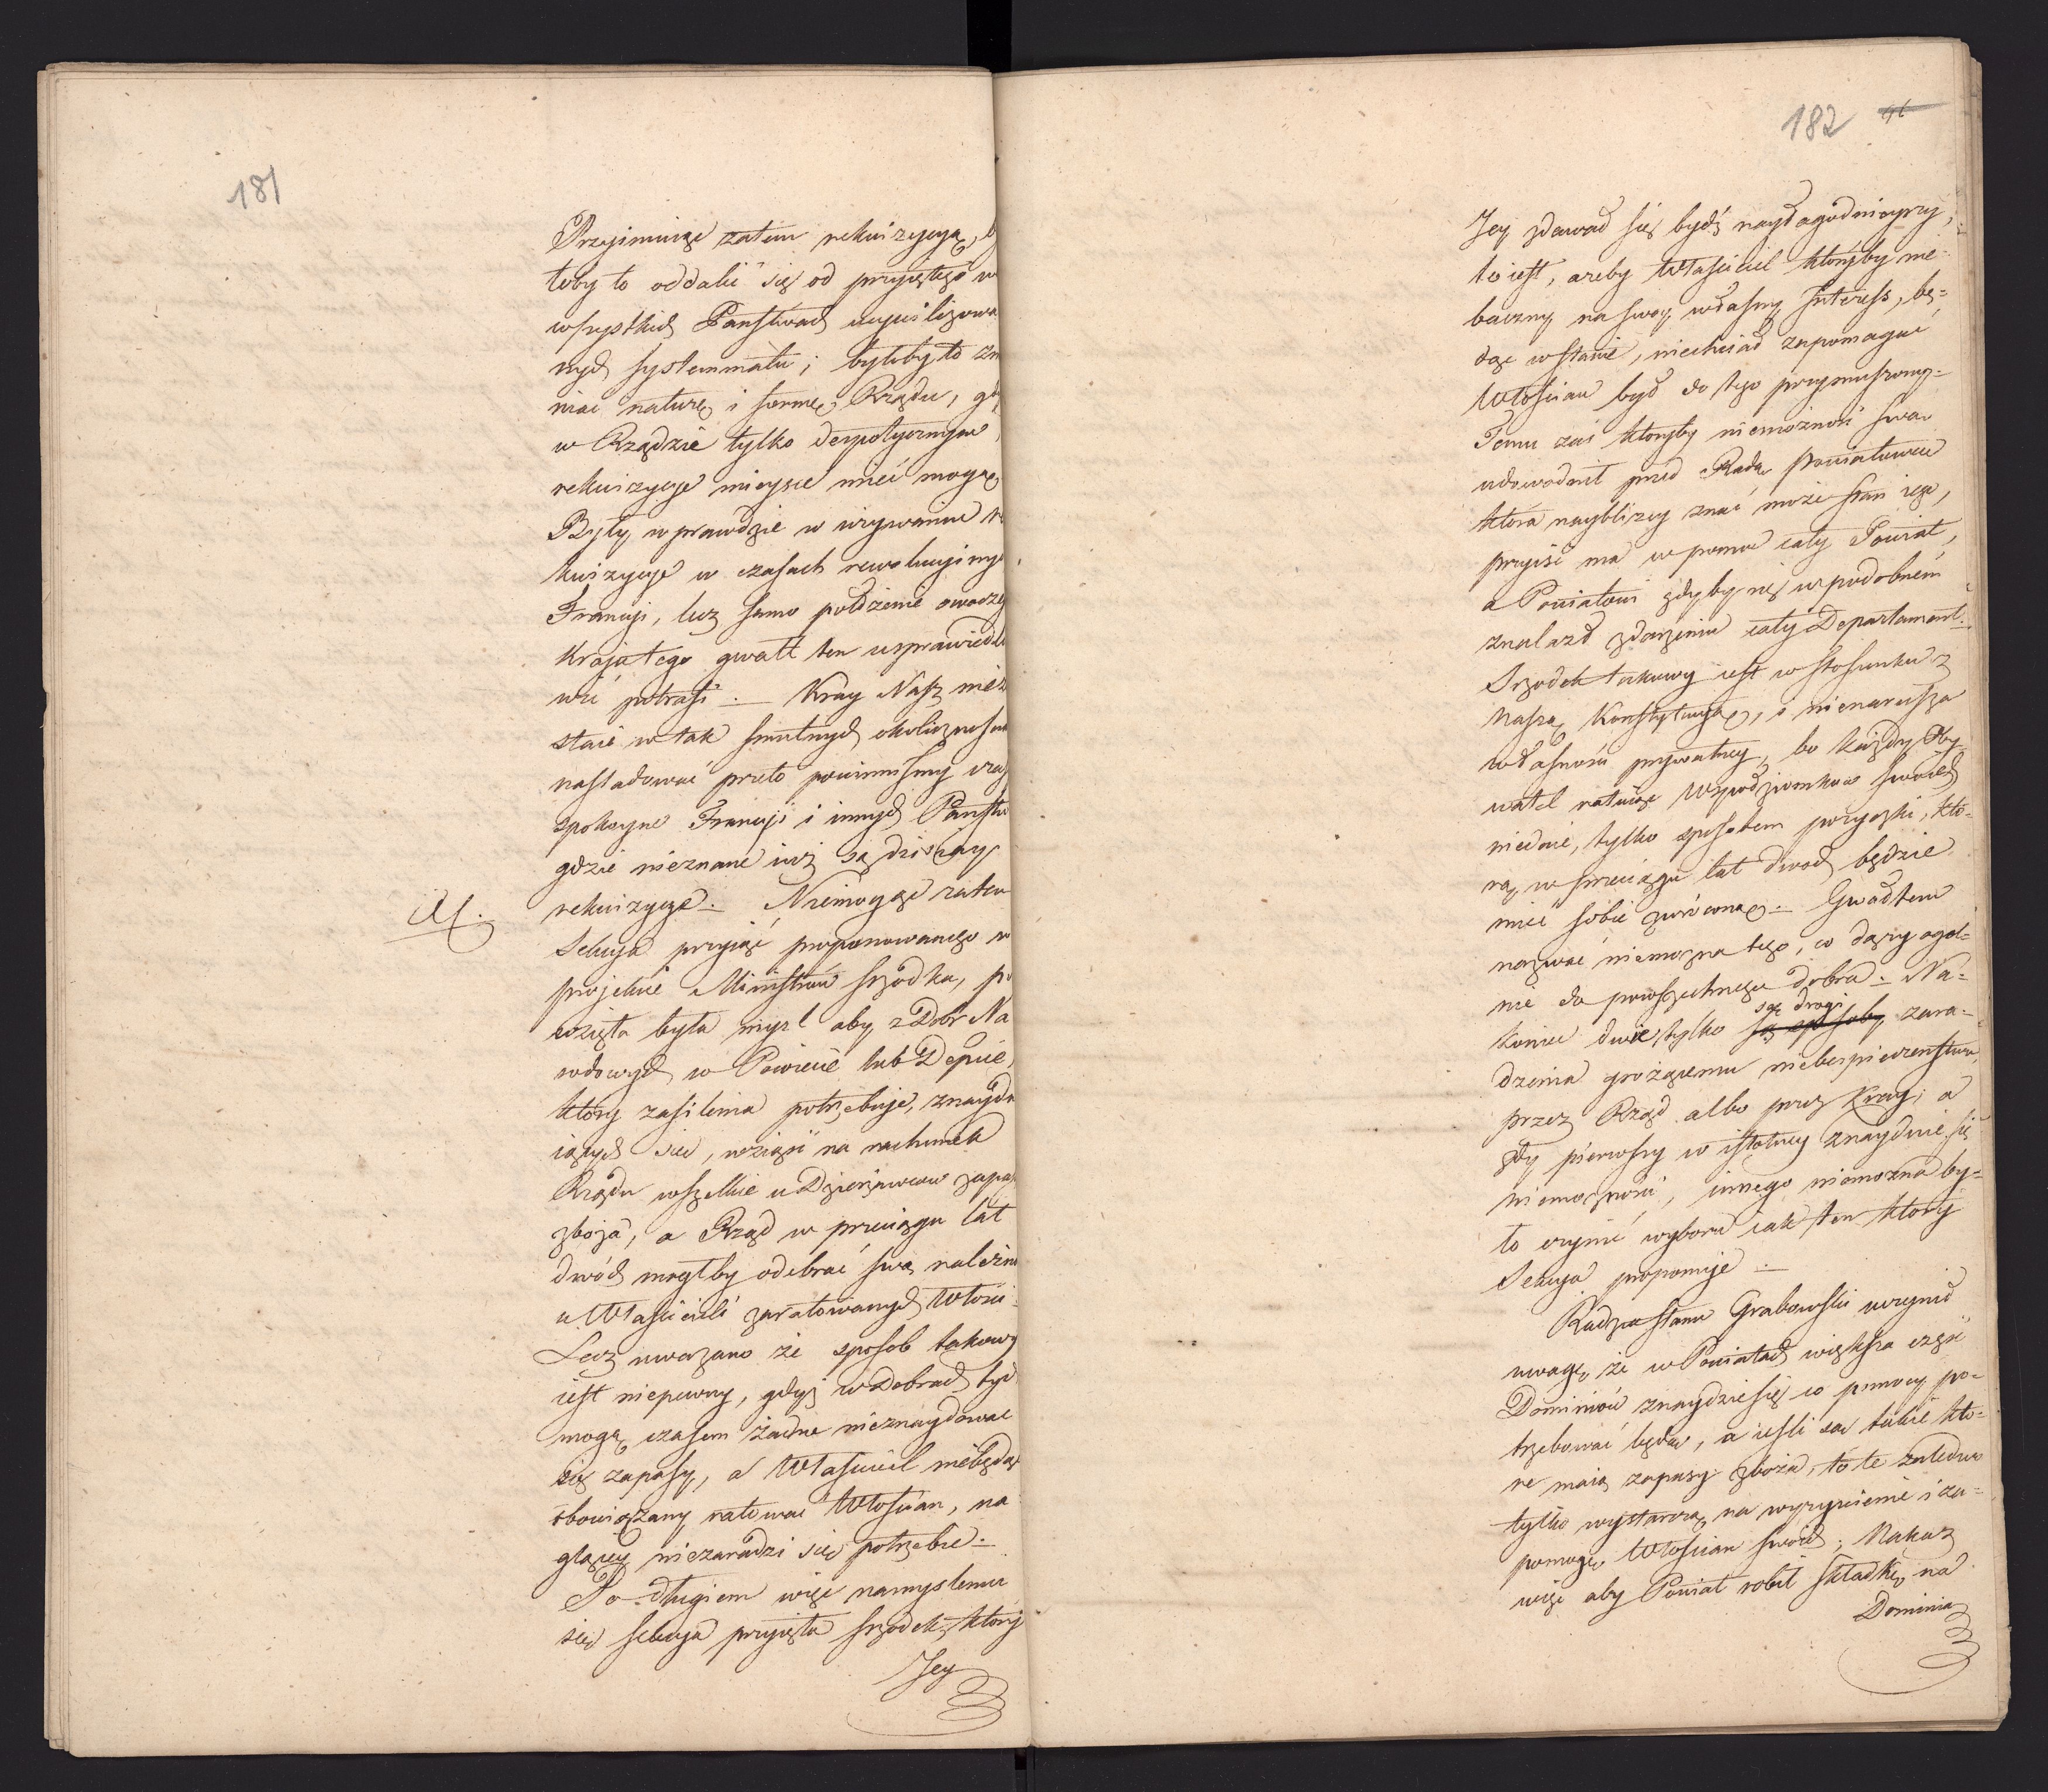 181
Przyimuiąc zatem rekwizycyą,
toby to oddalić się od przyiętego w
wszystkich Państwach ucywilizowa
nych systemmatu; byłoby to zm
niać naturę i formę Rządu, gdy
w Rządzie tylko despotycznym
rekwizycye mieysce mieć mogą
Były wprawdzie w używaniu re
kwizycye w czasach rewolucyinych
Francyi, lecz samo położenie owocze
Kraju tego gwałt ten usprawiedli
wić potrafi. — Kray Nasz nie
staie w tak smutnych okolicznosci
nasladować przeto powinnismy czasy
spokoyne Francyi i innych Państw
gdzie nieznane iuż są dzisiay
rekwizycye. — Niemogąc zatem
M.
Sekcya przyiąć proponowanego w
projekcie Ministrów szrodka, po
wzięta była mysl aby z Dobr Na
rodowych w Powiecie lub Depcie,
który zasilenia potrzebuje, znaydu
iących się, wziąść na rachunek
Rządu wszelkie u Dzierżawcow zapasy
zboża, a Rząd w przeciągu lat
dwóch mogłby odebrać swą należność
u Właścicieli zaratowanych Włosci
Lecz uważano że sposob takowy
iest niepewny, gdyż w Dobrach tych
mogą czasem żadne nieznaydować
się zapasy, a Własciciel niebędąc
obowiązany ratować Włoscian, na
glącey niezaradzi się potrzebie. —
Po długiem więc namysleniu
się Sekcya przyięła szrodek, który
Jey
182 91
Jey zdawał się bydź nayłagodnieyszy,
to iest, ażeby Własciciel któryby nie-
baczny na swoy własny Interess, bę-
dąc wstanie, niechciał zapomagać
Włoscian był do tego przymuszony. —
Temu zaś któryby niemożność swą
udowodnił przed Radą Powiatową
która naybliżey znać może stan iego,
przyiść ma w pomoc cały Powiat,
a Powiatowi gdyby się w podobnem
znalazł zdarzeniu cały Departament. —
Srzodek takowy iest w stosunku z
Naszą Konstytucyą, i nienarusza
własności prywatney, bo każdy Oby
watel ratuiąc Współziomkow swoich
niedaie, tylko sposobem pożyczki, któ-
rą w przeciągu lat dwoch będzie
mieć sobie zwróconą. — Gwałtem
nazwać niemożna tego, co dąży ogol-
nie do powszechnego dobra. — Na-
koniec dwie tylko są sposoby są drogi zara-
dzenia grożącemu niebezpieczenstwu,
przez Rząd albo przez Kray; a
gdy pierwszy w istotney znayduie się
niemożności, innego niemożna by-
ło czynić wyboru iak ten który
Sekcya proponuje. —
Radzca stanu Grabowski uczynił
uwagę, że w Powiatach większa część
Dominiów znaydzie się co pomocy po-
trzebować będą, a iesli są takie któ-
re maią zapasy zboża, to te zaledwo
tylko wystarczą na wyżywienie i za-
pomogę Włoscian swoich; Nakaz
więc aby Powiat robił składkę, na
Dominia